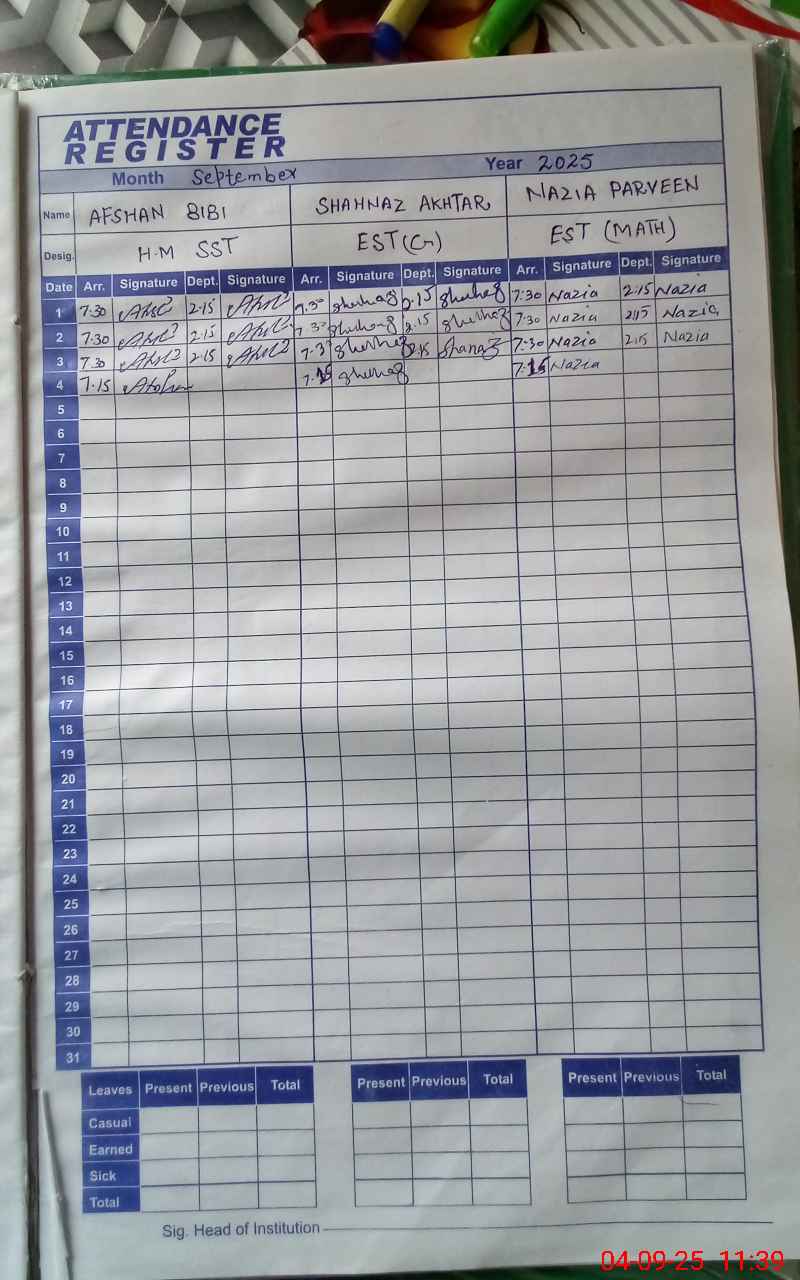 ATTENDANCE
REGISTER
Month September Year 2025
Name AFSHAN BIBI SHAHNAZ AKHTAR NAZIA PARVEEN
Desig. H.M SST EST (G) EST (MATH)
Date Arr. Signature Dept. Signature Arr. Signature Dept. Signature Arr. Signature Dept. Signature
1 7:30 2:15 7.30 2:15 7:30 Nazia 2:15 Nazia
2 7:30 2:15 7.30 2:15 7:30 Nazia 2:15 Nazia
3 7.30 2:15 7.3 2:15 Shanaz 7:30 Nazia 2:15 Nazia
4 7.15 7.15 7.15 Nazia
5
6
7
8
9
10
11
12
13
14
15
16
17
18
19
20
21
22
23
24
25
26
27
28
29
30
31
Leaves Present Previous Total Present Previous Total Present Previous Total
Casual
Earned
Sick
Total
Sig. Head of Institution
04-09-25 11:39